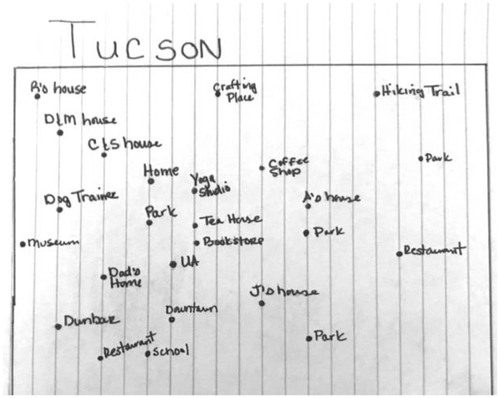 TUCSON
R's house
Crafting
Place
Hiking Trail
D&M house
C&S house
Coffee
Shop
Park
Home
Yoga
Studio
Dog Trainer
A's house
Park
Tea House
Park
museum
Bookstore
Restaurant
UA
Dad's
Home
J's house
Dunbar
Downtown
Park
Restaurant
School